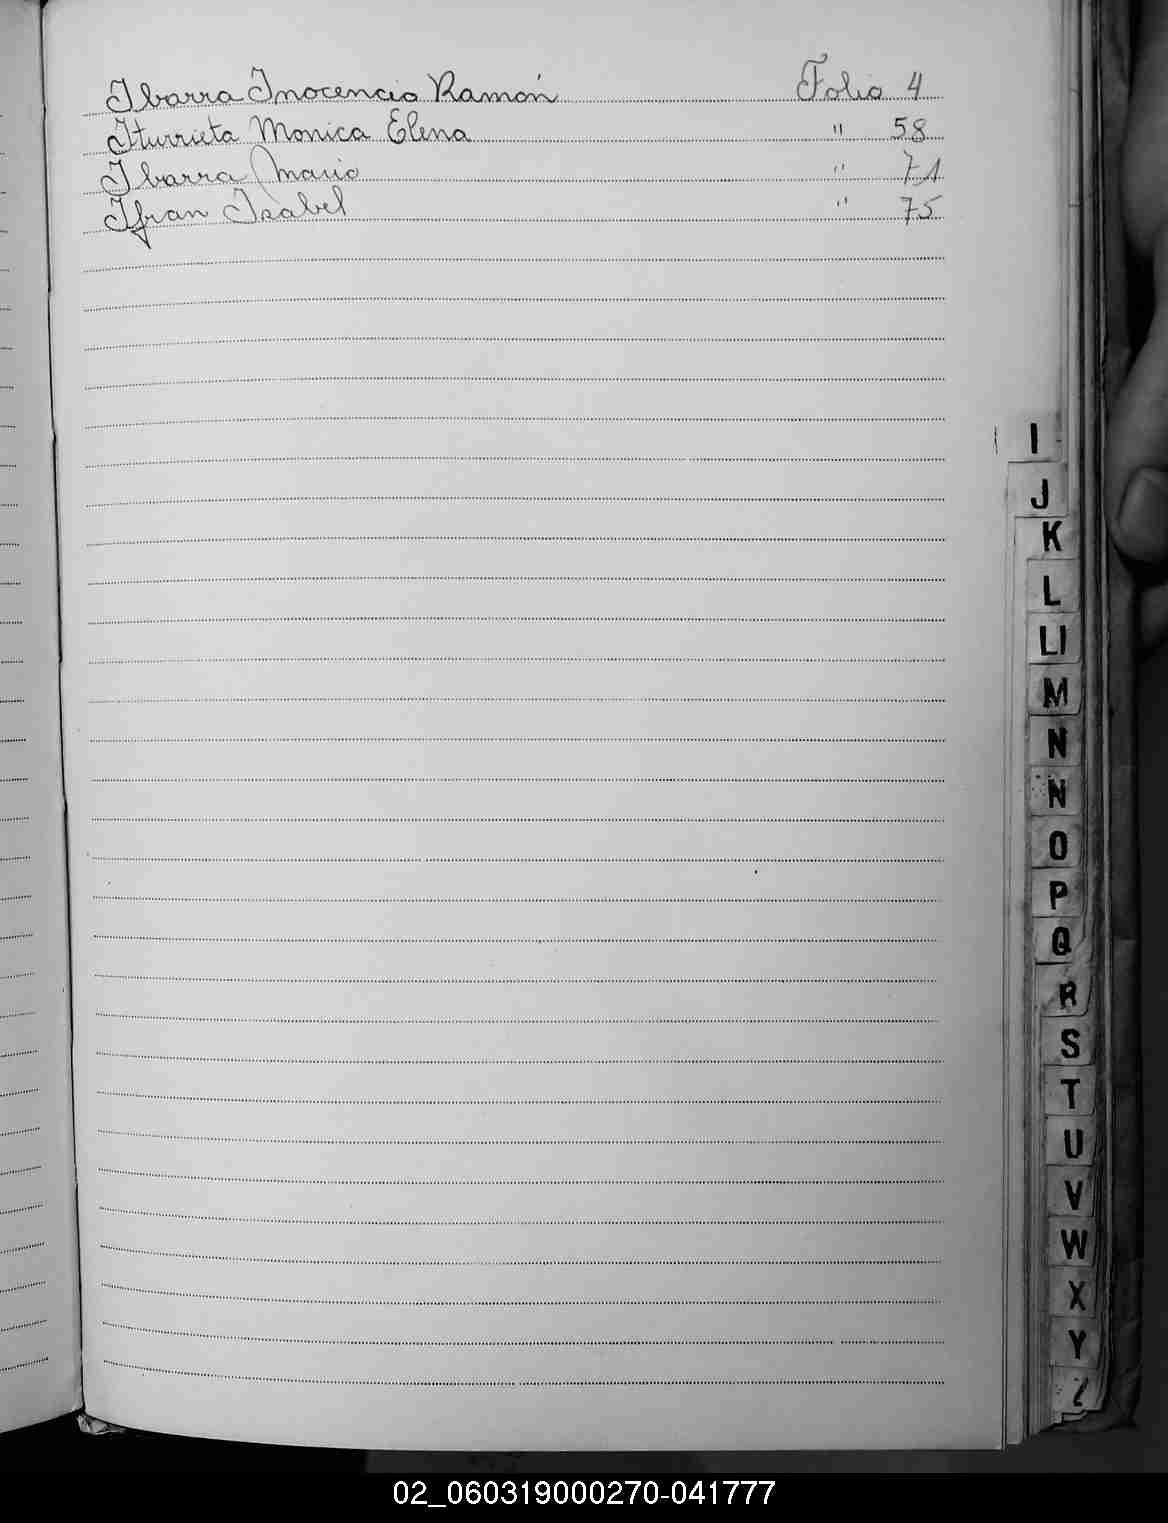 Ibarra Inocencio Ramón Folio 4
Iturrieta Monica Elena " 58
Ibarra Mario " 71
Ifran Isabel " 75
I
J
K
L
Ll
M
N
Ñ
O
P
Q
R
S
T
U
V
W
X
Y
Z
02_060319000270-041777